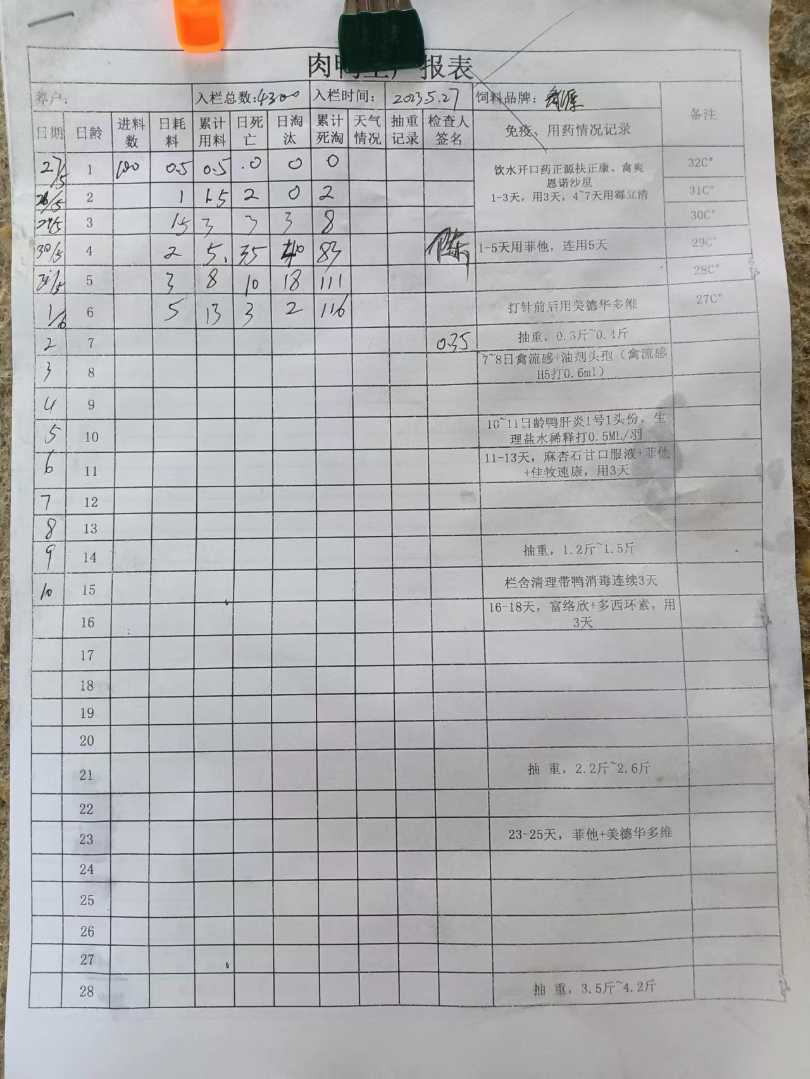 肉鸭生产报表
养户： 入栏总数:4300 入栏时间: 2023.5.27 饲料品牌:
日期 日龄 进料数 日耗料 累计用料 日死亡 日淘汰 累计死淘 天气情况 抽重记录 检查人签名 免疫、用药情况记录 备注
27/5 1 100 0.5 0.5 0 0 0 饮水开口药正源扶正康、禽爽 32C°
恩诺沙星
28/5 2 1 1.5 2 0 2 1-3天，用3天，4~7天用霉立清 31C°
29/5 3 1.5 3 3 3 8 30C°
30/5 4 2 5. 35 40 83 陈 1-5天用菲他，连用5天 29C°
31/5 5 3 8 10 18 111 28C°
1/6 6 5 13 3 2 116 打针前后用美德华多维 27C°
2 7 0.35 抽重，0.3斤~0.4斤
3 8 7~8日禽流感+油剂头孢（禽流感
H5打0.6ml）
4 9
5 10 10~11日龄鸭肝炎1号1头份，生
理盐水稀释打0.5ML/羽
6 11 11-13天，麻杏石甘口服液+菲他
+佳牧速康，用3天
7 12
8 13
9 14 抽重，1.2斤~1.5斤
10 15 栏舍清理带鸭消毒连续3天
16 16-18天，富络欣+多西环素，用
3天
17
18
19
20
21 抽 重，2.2斤~2.6斤
22
23 23-25天，菲他+美德华多维
24
25
26
27
28 抽 重，3.5斤~4.2斤